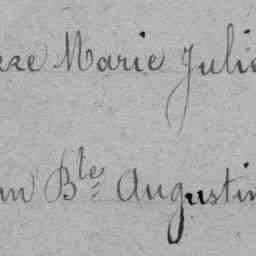 Marie Julie
Bte Augustin